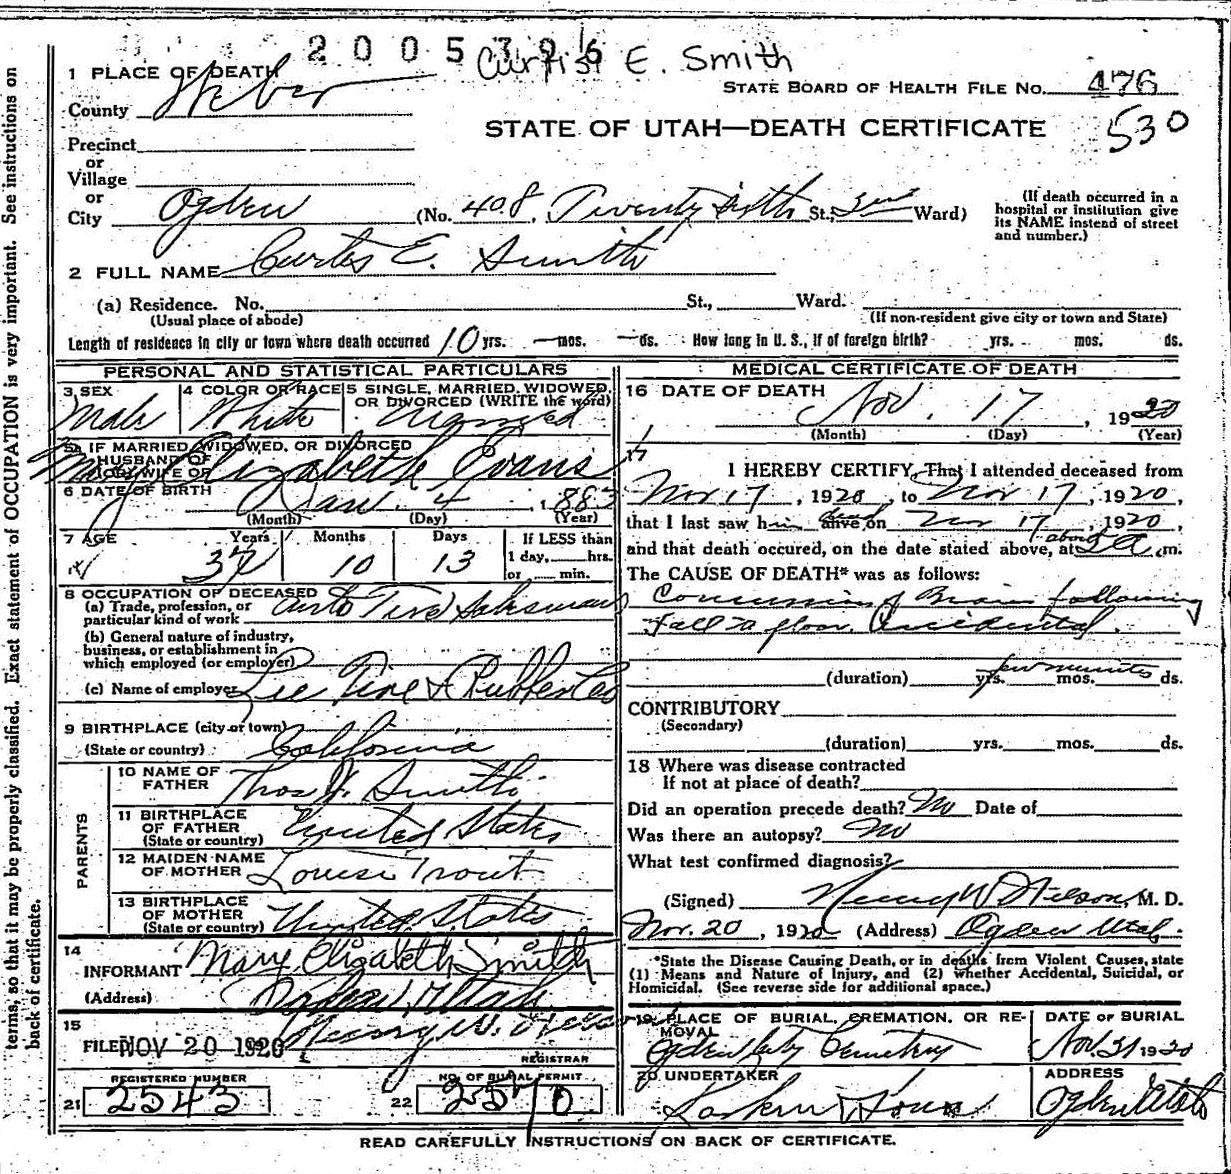 2005396
Curtist E. Smith
1 PLACE OF DEATH
County Weber
STATE BOARD OF HEALTH FILE No. 476
STATE OF UTAH—DEATH CERTIFICATE
530
Precinct
or
Village
or
City Ogden (No. 408, Twenty Sixth St., 3rd Ward)
(If death occurred in a hospital or institution give its NAME instead of street and number.)
2 FULL NAME Curtis E. Smith
(a) Residence. No. St., Ward.
(Usual place of abode) (If non-resident give city or town and State)
Length of residence in city or town where death occurred 10 yrs. — mos. — ds. How long in U. S., if of foreign birth? yrs. mos. ds.
PERSONAL AND STATISTICAL PARTICULARS
3 SEX Male
4 COLOR OR RACE White
5 SINGLE, MARRIED, WIDOWED, OR DIVORCED (WRITE the word) Married
5a IF MARRIED, WIDOWED, OR DIVORCED
HUSBAND OF
(OR) WIFE OF
Mary Elizabeth Evans
6 DATE OF BIRTH Jan. 4, 1883
(Month) (Day) (Year)
7 AGE Years Months Days If LESS than
37 10 13 1 day, hrs.
or min.
8 OCCUPATION OF DECEASED
(a) Trade, profession, or
particular kind of work Auto Tire Salesman
(b) General nature of industry,
business, or establishment in
which employed (or employer)
(c) Name of employer Lee Tire & Rubber Co
9 BIRTHPLACE (city or town)
(State or country) California
PARENTS
10 NAME OF
FATHER Thos J. Smith
11 BIRTHPLACE
OF FATHER United States
(State or country)
12 MAIDEN NAME
OF MOTHER Louise Trout
13 BIRTHPLACE
OF MOTHER United States
(State or country)
14
INFORMANT Mary Elizabeth Smith
(Address) Ogden, Utah
15
FILED NOV 20 1920 Henry W.
REGISTRAR
REGISTERED NUMBER
21 2543
NO. OF BURIAL PERMIT
22 2570
MEDICAL CERTIFICATE OF DEATH
16 DATE OF DEATH
Nov. 17, 1920
(Month) (Day) (Year)
17
I HEREBY CERTIFY, That I attended deceased from
Nov 17, 1920, to Nov 17, 1920,
that I last saw him alive on dead Nov 17, 1920,
and that death occured, on the date stated above, at about 2 a. m.
The CAUSE OF DEATH* was as follows:
Concussion of Brain following
Fall to floor. Accidental.
few minutes
(duration) yrs. mos. ds.
CONTRIBUTORY
(Secondary)
(duration) yrs. mos. ds.
18 Where was disease contracted
If not at place of death?
Did an operation precede death? No Date of
Was there an autopsy? No
What test confirmed diagnosis?
(Signed) Henry W. Nelson, M. D.
Nov. 20, 1920 (Address) Ogden Utah.
*State the Disease Causing Death, or in deaths from Violent Causes, state
(1) Means and Nature of Injury, and (2) whether Accidental, Suicidal, or
Homicidal. (See reverse side for additional space.)
19 PLACE OF BURIAL, CREMATION, OR RE-
MOVAL
Ogden City Cemetery
DATE OF BURIAL
Nov. 21 1920
20 UNDERTAKER
Larkin & Sons
ADDRESS
Ogden Utah
READ CAREFULLY INSTRUCTIONS ON BACK OF CERTIFICATE.
terms, so that it may be properly classified. Exact statement of OCCUPATION is very important. See instructions on
back of certificate.